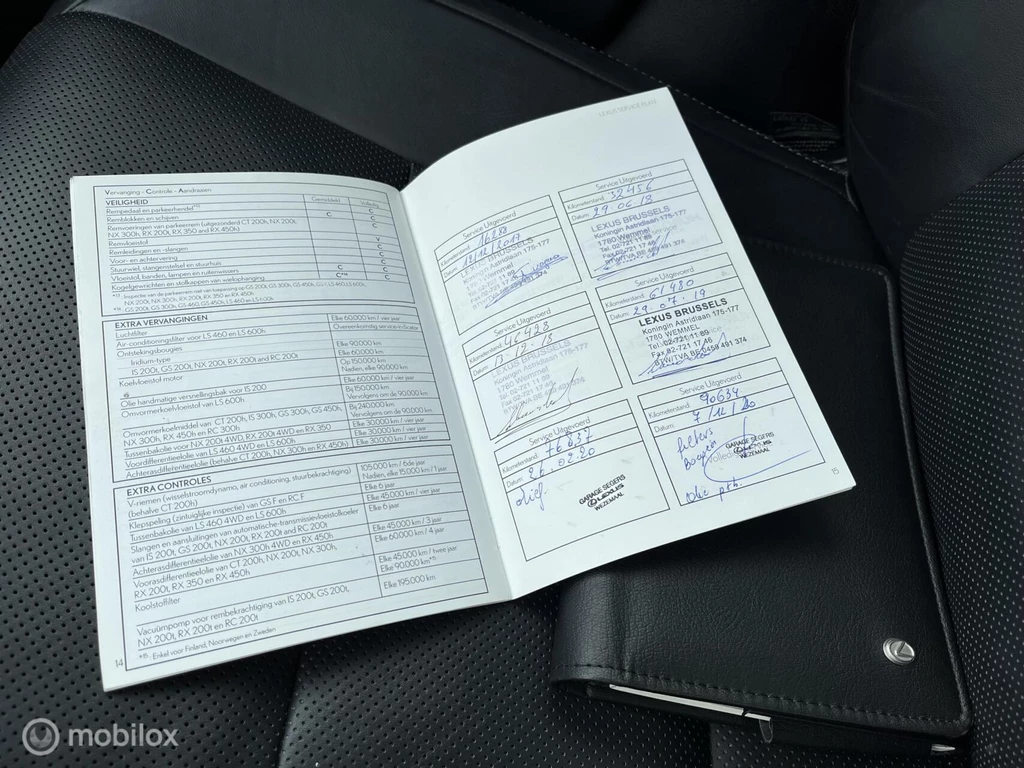 Vervanging - Controle - Aandraaien
VEILIGHEID Gemiddeld Volledig
Rempedaal en parkeerhendel C
Remblokken en schijven C C
Remvoeringen van parkeerrem (uitgezonderd CT 200h, NX 200t, C
NX 300h, RX 200t, RX 350 en RX 450h)
Remvloeistof
Remleidingen en -slangen C
Voor- en achtervering C
Stuurwiel, stangenstelsel en stuurhuis C
Vloeistof, banden, lampen en ruitenwissers C C
Kogelgewrichten en stofkappen van wielophanging C
EXTRA VERVANGINGEN
Luchtfilter Elke 60.000 km / vier jaar
Air-conditioningfilter voor LS 460 en LS 600h Overeenkomstig service-indicator
Ontstekingsbougies
Iridium-type Elke 90.000 km
IS 200t, GS 200t, NX 200t, RX 200t and RC 200t Elke 60.000 km
Koelvloeistof motor Op 150.000 km
Nadien, elke 90.000 km
Olie handmatige versnellingsbak voor IS 200 Elke 60.000 km / vier jaar
Omvormerkoelvloeistof van LS 600h Bij 150.000 km
Vervolgens om de 90.000 km
Omvormerkoelmiddel van CT 200h, IS 300h, GS 300h, GS 450h, Bij 240.000 km
NX 300h, RX 450h en RC 300h Vervolgens om de 90.000 km
Tussenbakolie voor NX 200t 4WD, RX 200t 4WD en RX 350 Elke 30.000 km / vier jaar
Voordifferentieelolie van LS 460 4WD en LS 600h Elke 30.000 km / vier jaar
Achterasdifferentieelolie (behalve CT 200h, NX 300h en RX 450h) Elke 30.000 km / vier jaar
EXTRA CONTROLES
V-riemen (wisselstroomdynamo, air conditioning, stuurbekrachtiging) 105.000 km / 6de jaar
(behalve CT 200h) Nadien, elke 15.000 km / 1 jaar
Klepspeling (zintuiglijke inspectie) van GS F en RC F Elke 6 jaar
Tussenbakolie van LS 460 4WD en LS 600h Elke 45.000 km / vier jaar
Slangen en aansluitingen van automatische-transmissievloeistofkoeler Elke 6 jaar
van IS 200t, GS 200t, NX 200t, RX 200t and RC 200t
Achterasdifferentieelolie van NX 300h 4WD en RX 450h Elke 45.000 km / 3 jaar
Voorasdifferentieelolie van CT 200h, NX 200t, NX 300h, Elke 60.000 km / 4 jaar
RX 200t, RX 350 en RX 450h
Koolstoffilter Elke 45.000 km / twee jaar
Elke 90.000 km
Vacuümpomp voor rembekrachtiging van IS 200t, GS 200t, Elke 195.000 km
NX 200t, RX 200t en RC 200t
*15 . Enkel voor Finland, Noorwegen en Zweden
14
LEXUS SERVICE PLAN
Service Uitgevoerd
Kilometerstand:
Datum:
LEXUS BRUSSELS
Koningin Astridlaan 175-177
1780 Wemmel
Tel. 02-721 11 89
Service Uitgevoerd
Kilometerstand:
Datum: 29.06.18
LEXUS BRUSSELS
Koningin Astridlaan 175-177
1780 Wemmel
Tel. 02-721 11 89
Fax 02-721 17 46
BTW/TVA BE 0459 491 374
Service Uitgevoerd
Kilometerstand: 46428
Datum:
LEXUS BRUSSELS
Koningin Astridlaan 175-177
1780 Wemmel
Tel. 02-721 11 89
Fax 02-721 17 46
BTW/TVA BE 0459 491 374
Service Uitgevoerd
Kilometerstand: 61480
Datum: 29.07.19
LEXUS BRUSSELS
Koningin Astridlaan 175-177
1780 WEMMEL
Tel. 02-721 11 89
Fax 02-721 17 46
BTW/TVA BE 0459 491 374
Service Uitgevoerd
Kilometerstand: 76837
Datum: 26.02.20
GARAGE SEGERS
LEXUS
WEZEMAAL
Service Uitgevoerd
Kilometerstand: 90634
Datum: 7/12/20
GARAGE SEGERS
WEZEMAAL
15
mobilox